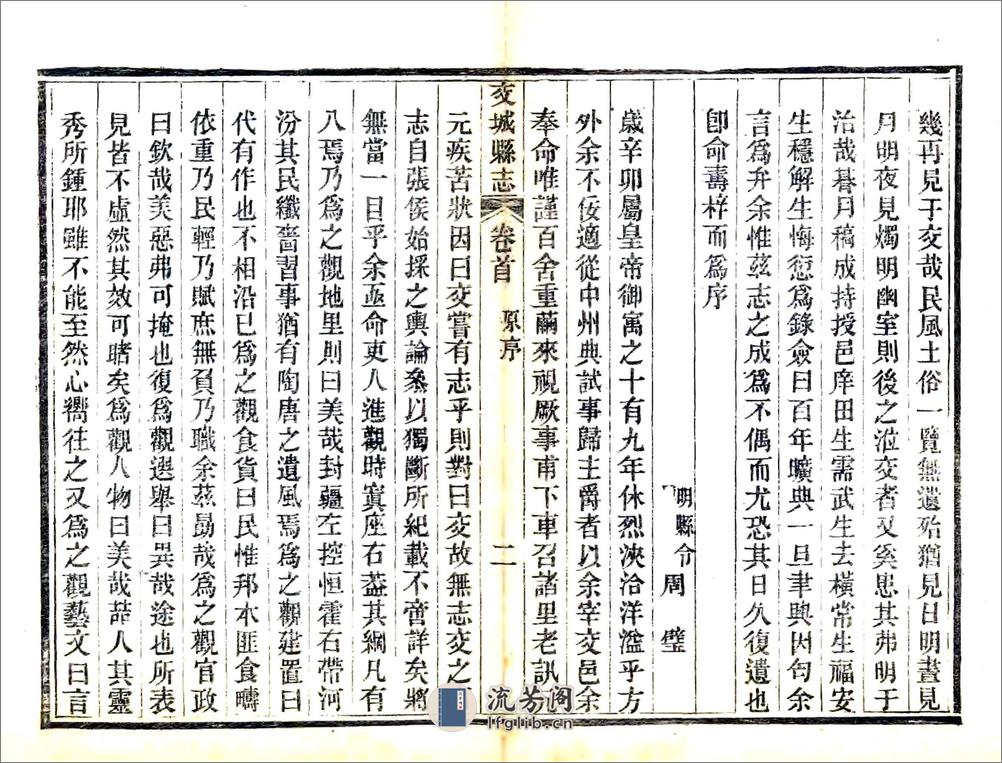 幾再見于交哉民風土俗一覽無遺殆猶見日明晝見
月明夜見燭明幽室則後之涖交者又奚患其弗明于
治哉朞月稿成持授邑庠田生需武生去橫常生福安
生穩解生悔愆爲錄僉曰百年曠典一旦聿興因匄余
言爲弁余惟茲志之成爲不偶而尤恐其日久復遺也
卽命壽梓而爲序
明縣令周璧
歲辛卯屬皇帝御寓之十有九年休烈浹洽洋溢乎方
外余不佞適從中州典試事歸主爵者以余宰交邑余
奉命唯謹百舍重繭來視厥事甫下車召諸里老訊
元疾苦狀因曰交嘗有志乎則對曰交故無志交之
交城縣志 卷首 原序 二
志自張侯始採之輿論叅以獨斷所紀載不啻詳矣將
無當一目乎余亟命吏人進觀時寘座右葢其綱凡有
八焉乃爲之觀地里則曰美哉封疆左控恒霍右帶河
汾其民纖嗇習事猶有陶唐之遺風焉爲之觀建置曰
代有作也不相沿已爲之觀食貨曰民惟邦本匪食疇
依重乃民輕乃賦庶無負乃職余茲勗哉爲之觀官政
曰欽哉美惡弗可掩也復爲觀選舉曰異哉途也所表
見皆不虛然其效可睹矣爲觀人物曰美哉喆人其靈
秀所鍾耶雖不能至然心嚮往之又爲之觀藝文曰言
流芳阁
lfglib.cn